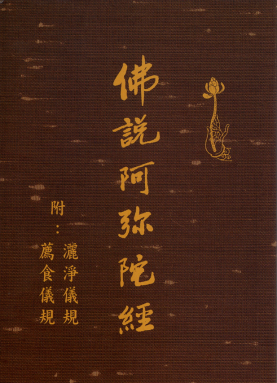 佛說阿弥陀經
附：
灑淨儀規
薦食儀規